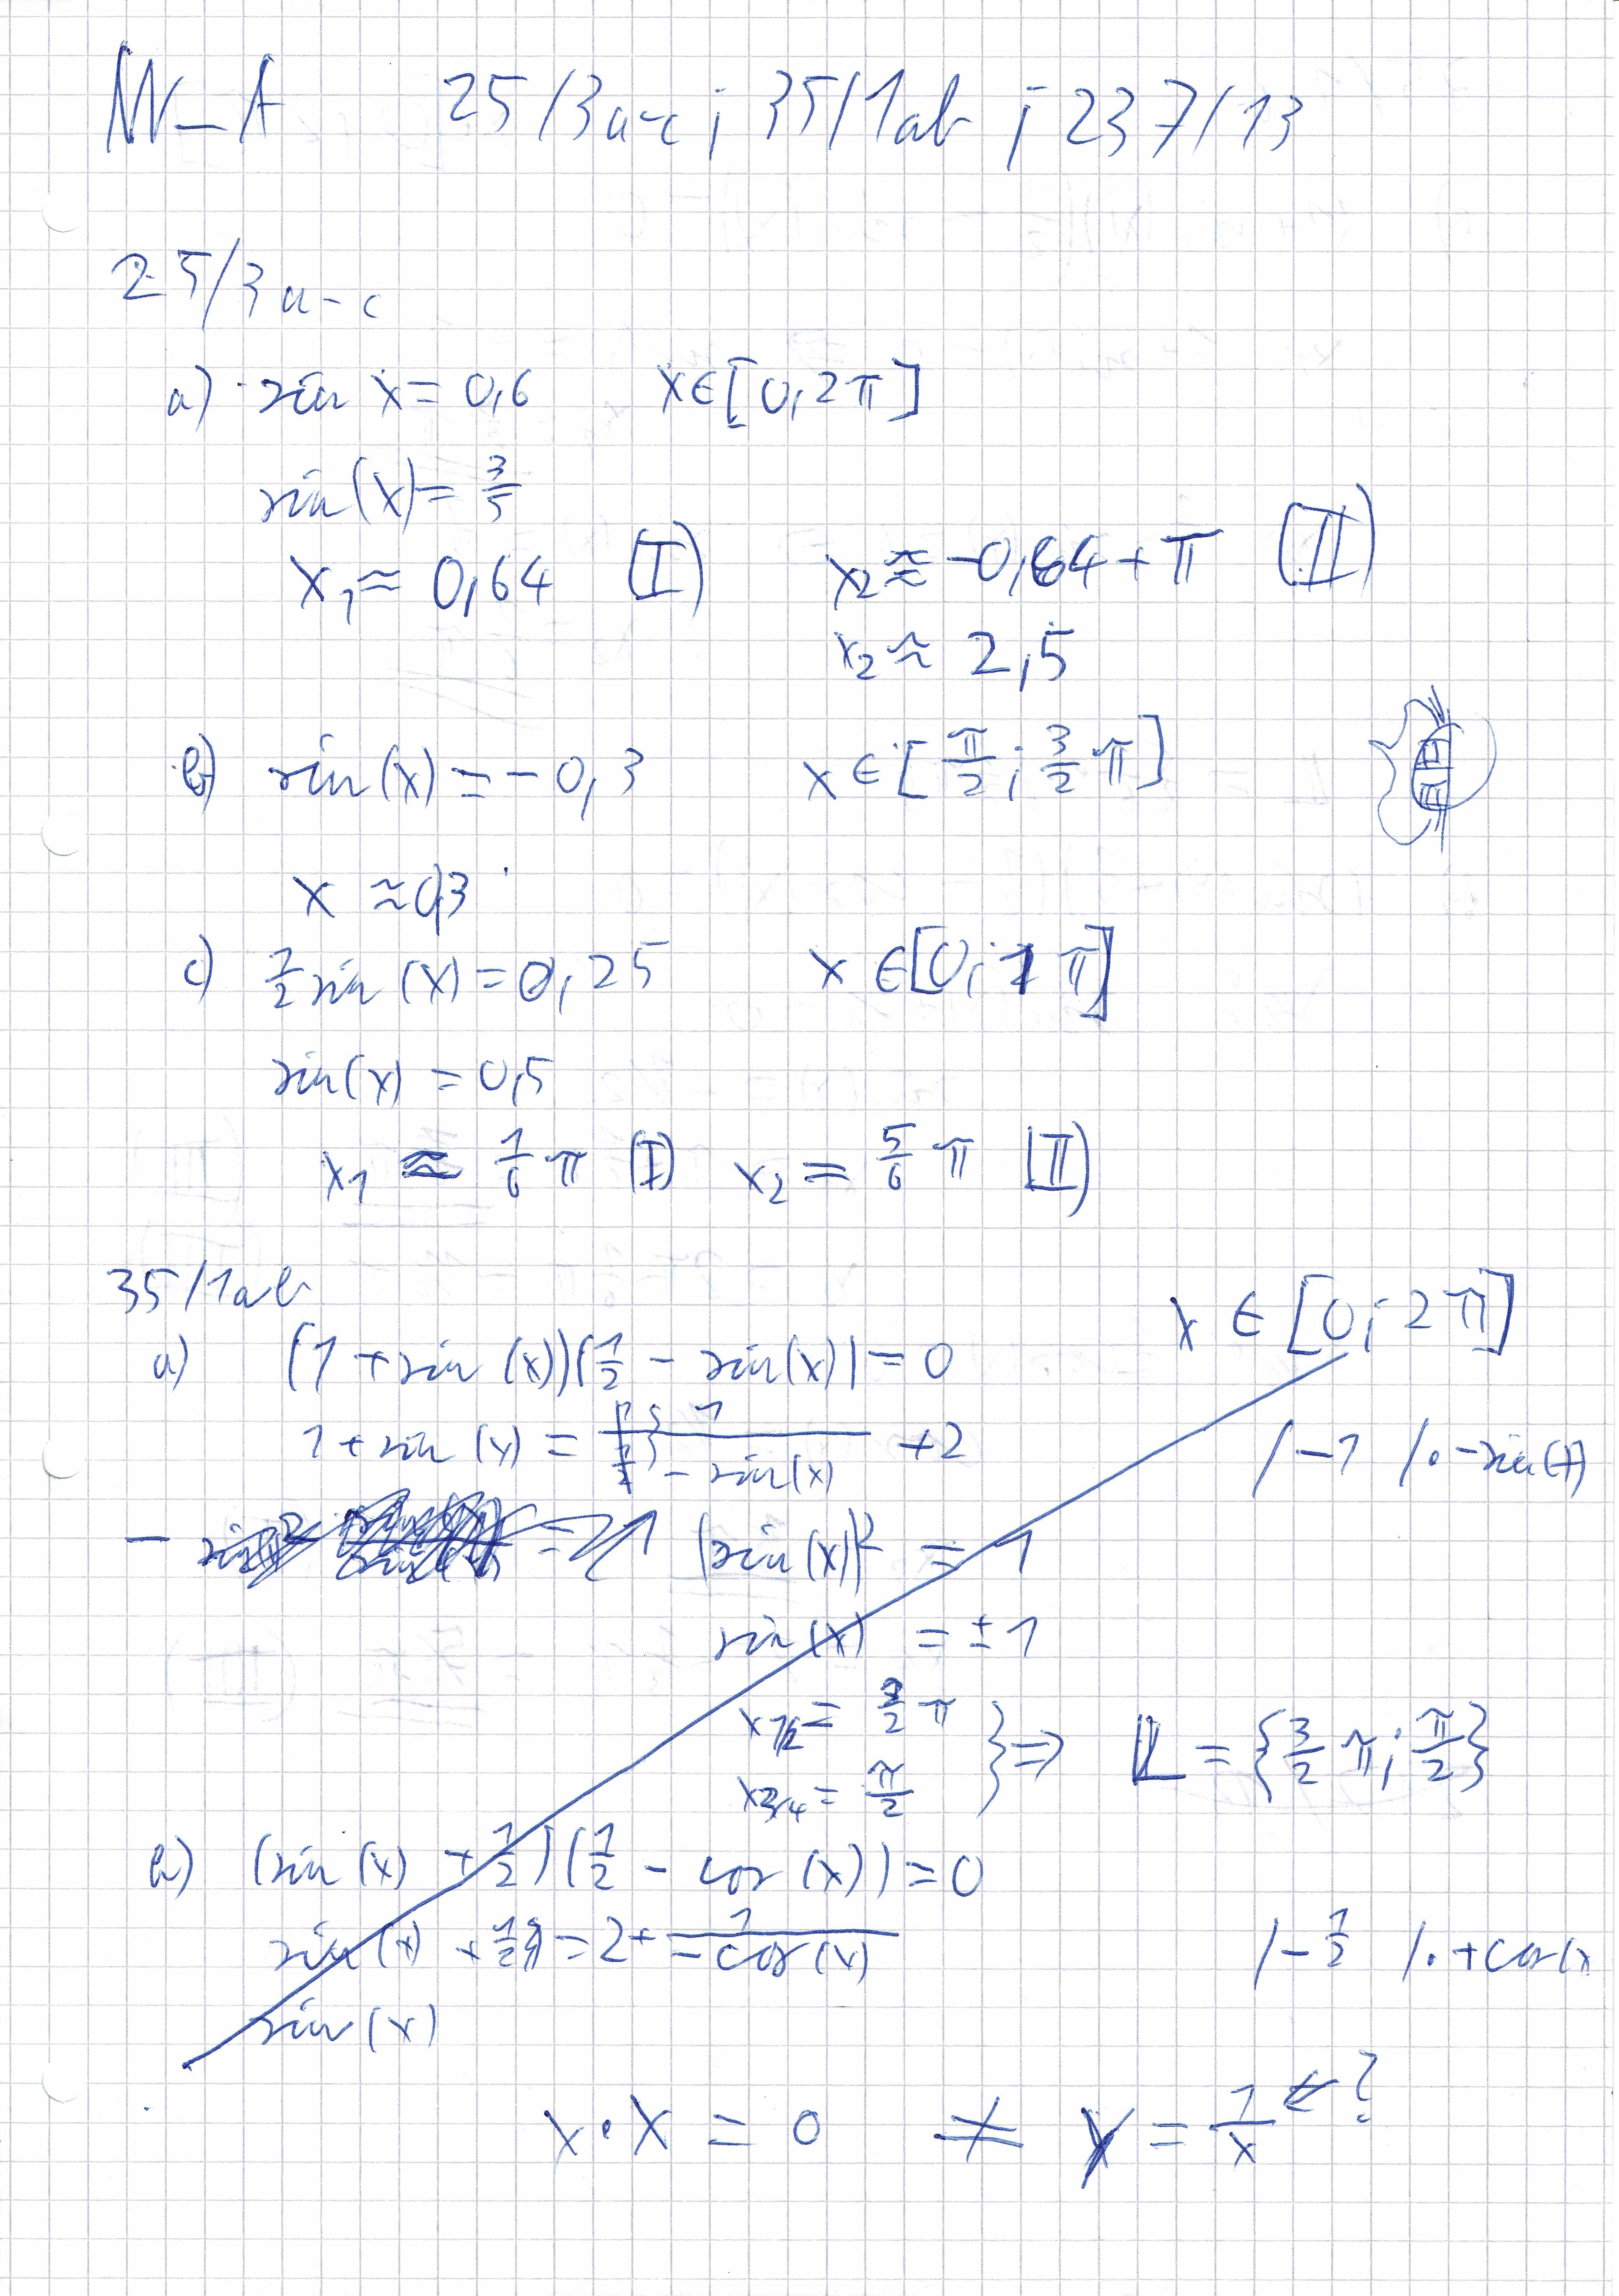 25/3a-c ; 35/1ab ; 237/13
25/3a-c
a) sin x = 0,6 x∈[0;2π]
sin(x) = 3/5
x₁ ≈ 0,64 (I) x₂ ≈ -0,64 + π (II)
x₂ ≈ 2,5
b) sin(x) = -0,3 x∈[π/2 ; 3/2 π]
x ≈ 0,3
c) 1/2 sin(x) = 0,25 x∈[0;1π]
sin(x) = 0,5
x₁ = 1/6 π (I) x₂ = 5/6 π (II)
35/1ab x∈[0;2π]
a) (1 + sin(x))(1/2 - sin(x)) = 0
1 + sin(x) = 1/(-sin(x)) + 2 /-1 /·-sin(x)
(sin(x))² = 1
sin(x) = ±1
x₁/₂ = 3/2 π
} ⇒ L = {3/2 π; π/2}
x₃/₄ = π/2
b) (sin(x) + 1/2)(1/2 - cos(x)) = 0
sin(x) + 1/2 = 2 + 1/(-cos(x)) /-1/2 /·+cos(x
sin(x)
x·x = 0 ≠ x = 1/x ?